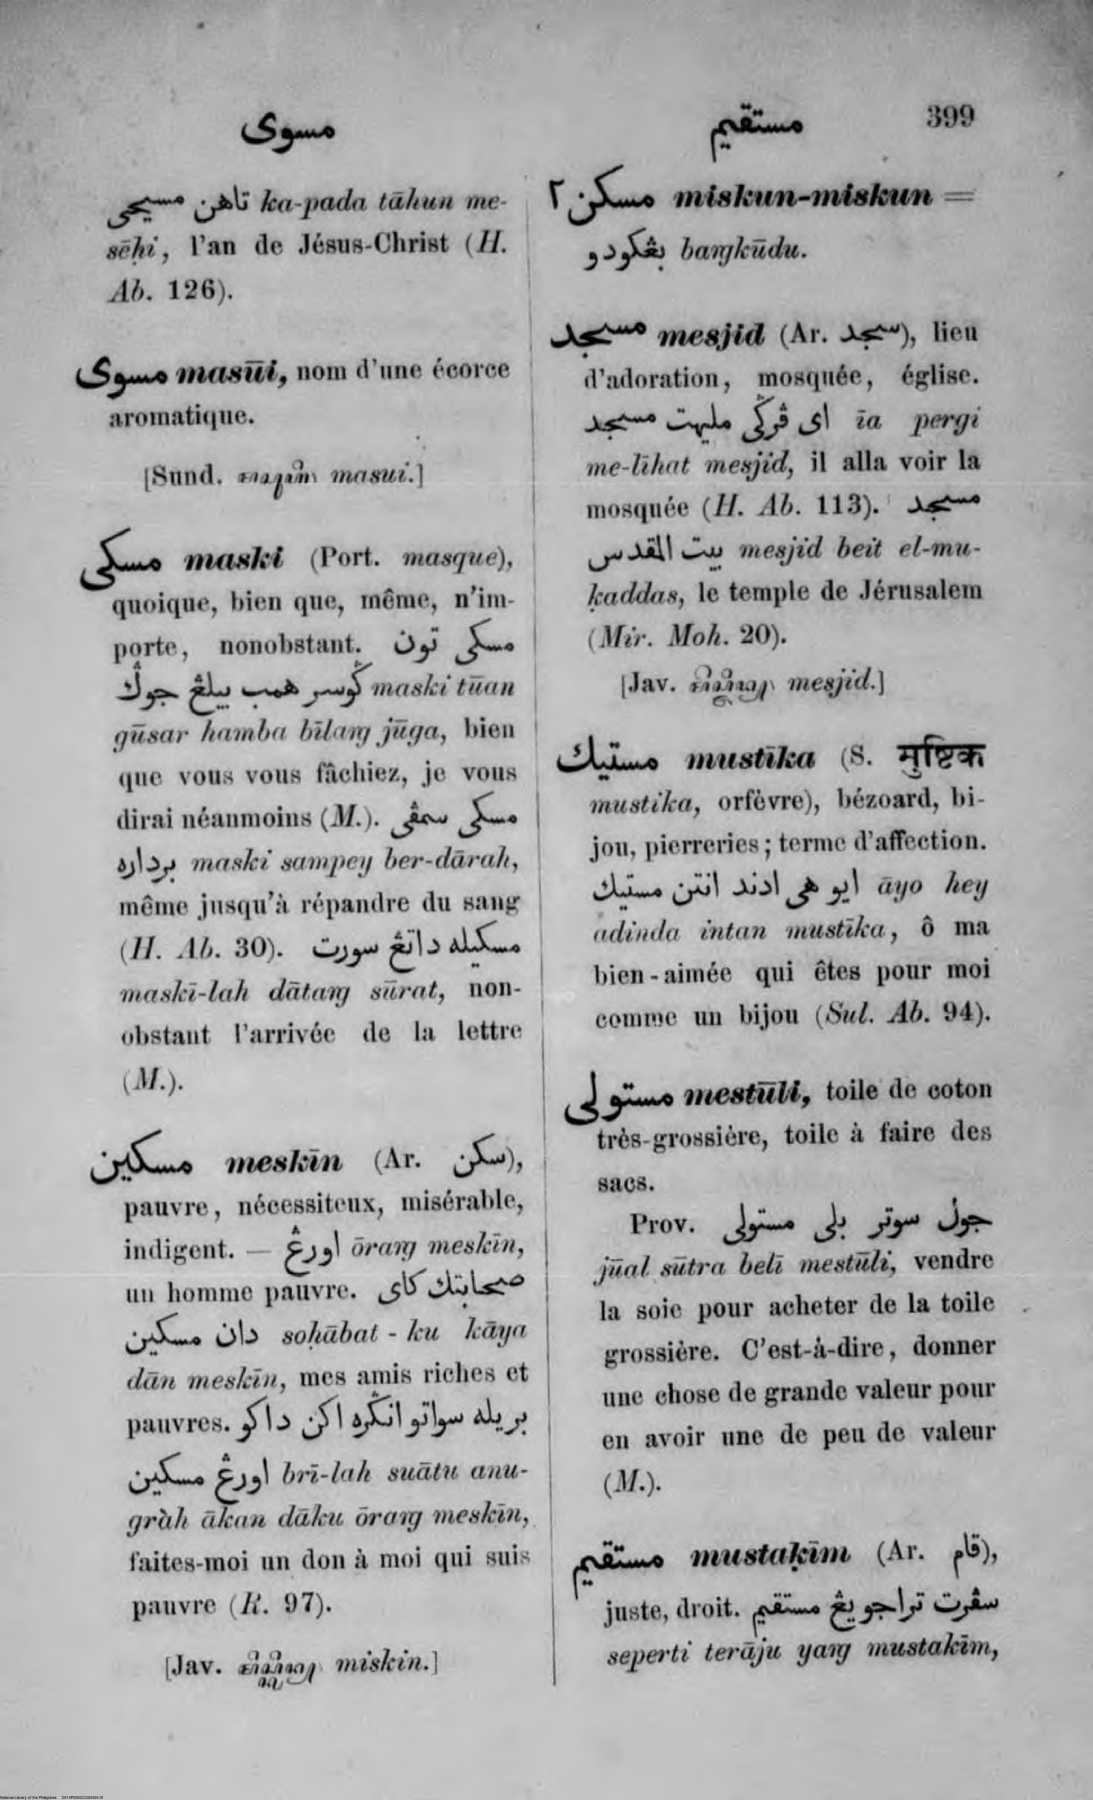 مسوى
مستقيم 399
تاهن مسيحى ka-pada tāhun me-
sēḥi, l'an de Jésus-Christ (H.
Ab. 126).
مسوى masūi, nom d'une écorce
aromatique.
[Sund. masui.]
مسكى maski (Port. masque),
quoique, bien que, même, n'im-
porte, nonobstant. مسكى تون
ݢوسر همب بيلڠ جوݢ maski tūan
gūsar hamba bīlaŋ jūga, bien
que vous vous fâchiez, je vous
dirai néanmoins (M.). مسكى سمڤى
برداره maski sampey ber-dārah,
même jusqu'à répandre du sang
(H. Ab. 30). مسكيله داتڠ سورت
maskī-lah dātaŋ sūrat, non-
obstant l'arrivée de la lettre
(M.).
مسكين meskīn (Ar. سكن),
pauvre, nécessiteux, misérable,
indigent. — اورڠ ōraŋ meskīn,
un homme pauvre. صحابتك كاى
دان مسكين soḥābat-ku kāya
dān meskīn, mes amis riches et
pauvres. بريله سواتو انݢره اكن داكو
اورڠ مسكين brī-lah suātu anu-
gràh ākan dāku ōraŋ meskīn,
faites-moi un don à moi qui suis
pauvre (R. 97).
[Jav. miskin.]
مسكن ٢ miskun-miskun =
بڠكودو baŋkūdu.
مسجد mesjid (Ar. سجد), lieu
d'adoration, mosquée, église.
اى ڤرݢى مليهت مسجد īa pergi
me-līhat mesjid, il alla voir la
mosquée (H. Ab. 113). مسجد
بيت المقدس mesjid beit el-mu-
ḳaddas, le temple de Jérusalem
(Mir. Moh. 20).
[Jav. mesjid.]
مستيك mustīka (S. मुष्टिक
mustika, orfèvre), bézoard, bi-
jou, pierreries; terme d'affection.
ايو هى ادند انتن مستيك āyo hey
adinda intan mustīka, ô ma
bien-aimée qui êtes pour moi
comme un bijou (Sul. Ab. 94).
مستولى mestūli, toile de coton
très-grossière, toile à faire des
sacs.
Prov. جول سوتر بلى مستولى
jūal sūtra belī mestūli, vendre
la soie pour acheter de la toile
grossière. C'est-à-dire, donner
une chose de grande valeur pour
en avoir une de peu de valeur
(M.).
مستقيم mustaḳīm (Ar. قام),
juste, droit. سڤرت تراجو يڠ مستقيم
seperti terāju yaŋ mustakīm,